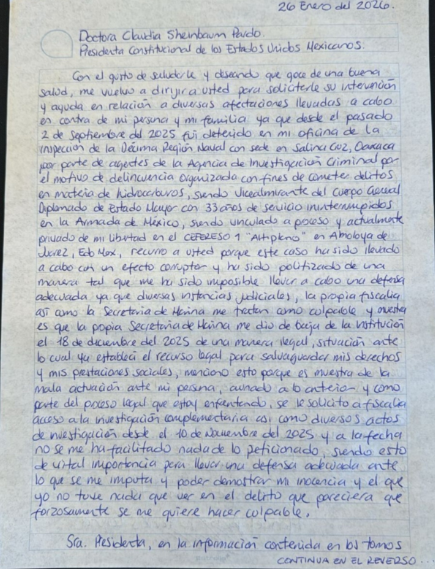 26 Enero del 2026.
Doctora Claudia Sheinbaum Pardo.
Presidenta Constitucional de los Estados Unidos Mexicanos.
Con el gusto de saludarle y deseando que goce de una buena
salud, me vuelvo a dirigir a usted para solicitarle su intervención
y ayuda en relación a diversas afectaciones llevadas a cabo
en contra de mi persona y mi familia ya que desde el pasado
2 de septiembre del 2025 fui detenido en mi oficina de la
Inspección de la Décima Región Naval con sede en Salina Cruz, Oaxaca
por parte de agentes de la Agencia de Investigación Criminal por
el motivo de delincuencia organizada con fines de cometer delitos
en materia de hidrocarburos, siendo Vicealmirante del Cuerpo General
Diplomado de Estado Mayor con 33 años de servicio ininterrumpidos
en la Armada de México, siendo vinculado a proceso y actualmente
privado de mi libertad en el CEFERESO 1 "Altiplano" en Almoloya de
Juárez, Edo Mex, recurro a usted porque este caso ha sido llevado
a cabo con un efecto corruptor y ha sido politizado de una
manera tal que me ha sido imposible llevar a cabo una defensa
adecuada ya que diversas instancias judiciales, la propia fiscalía
así como la Secretaría de Marina me tratan como culpable y muestra
es que la propia Secretaría de Marina me dio de baja de la institución
el 18 de diciembre del 2025 de una manera ilegal, situación ante
lo cual ya establecí el recurso legal para salvaguardar mis derechos
y mis prestaciones sociales, menciono esto porque es muestra de la
mala actuación ante mi persona, aunado a lo anterior y como
parte del proceso legal que estoy enfrentando, se le solicitó a fiscalía
acceso a la investigación complementaria así como diversos actos
de investigación desde el 10 de Noviembre del 2025 y a la fecha
no se me ha facilitado nada de lo peticionado, siendo esto
de vital importancia para llevar una defensa adecuada ante
lo que se me imputa y poder demostrar mi inocencia y el que
yo no tuve nada que ver en el delito que pareciera que
forzosamente se me quiere hacer culpable.
Sra. Presidenta, en la información contenida en los tomos
CONTINUA EN EL REVERSO...